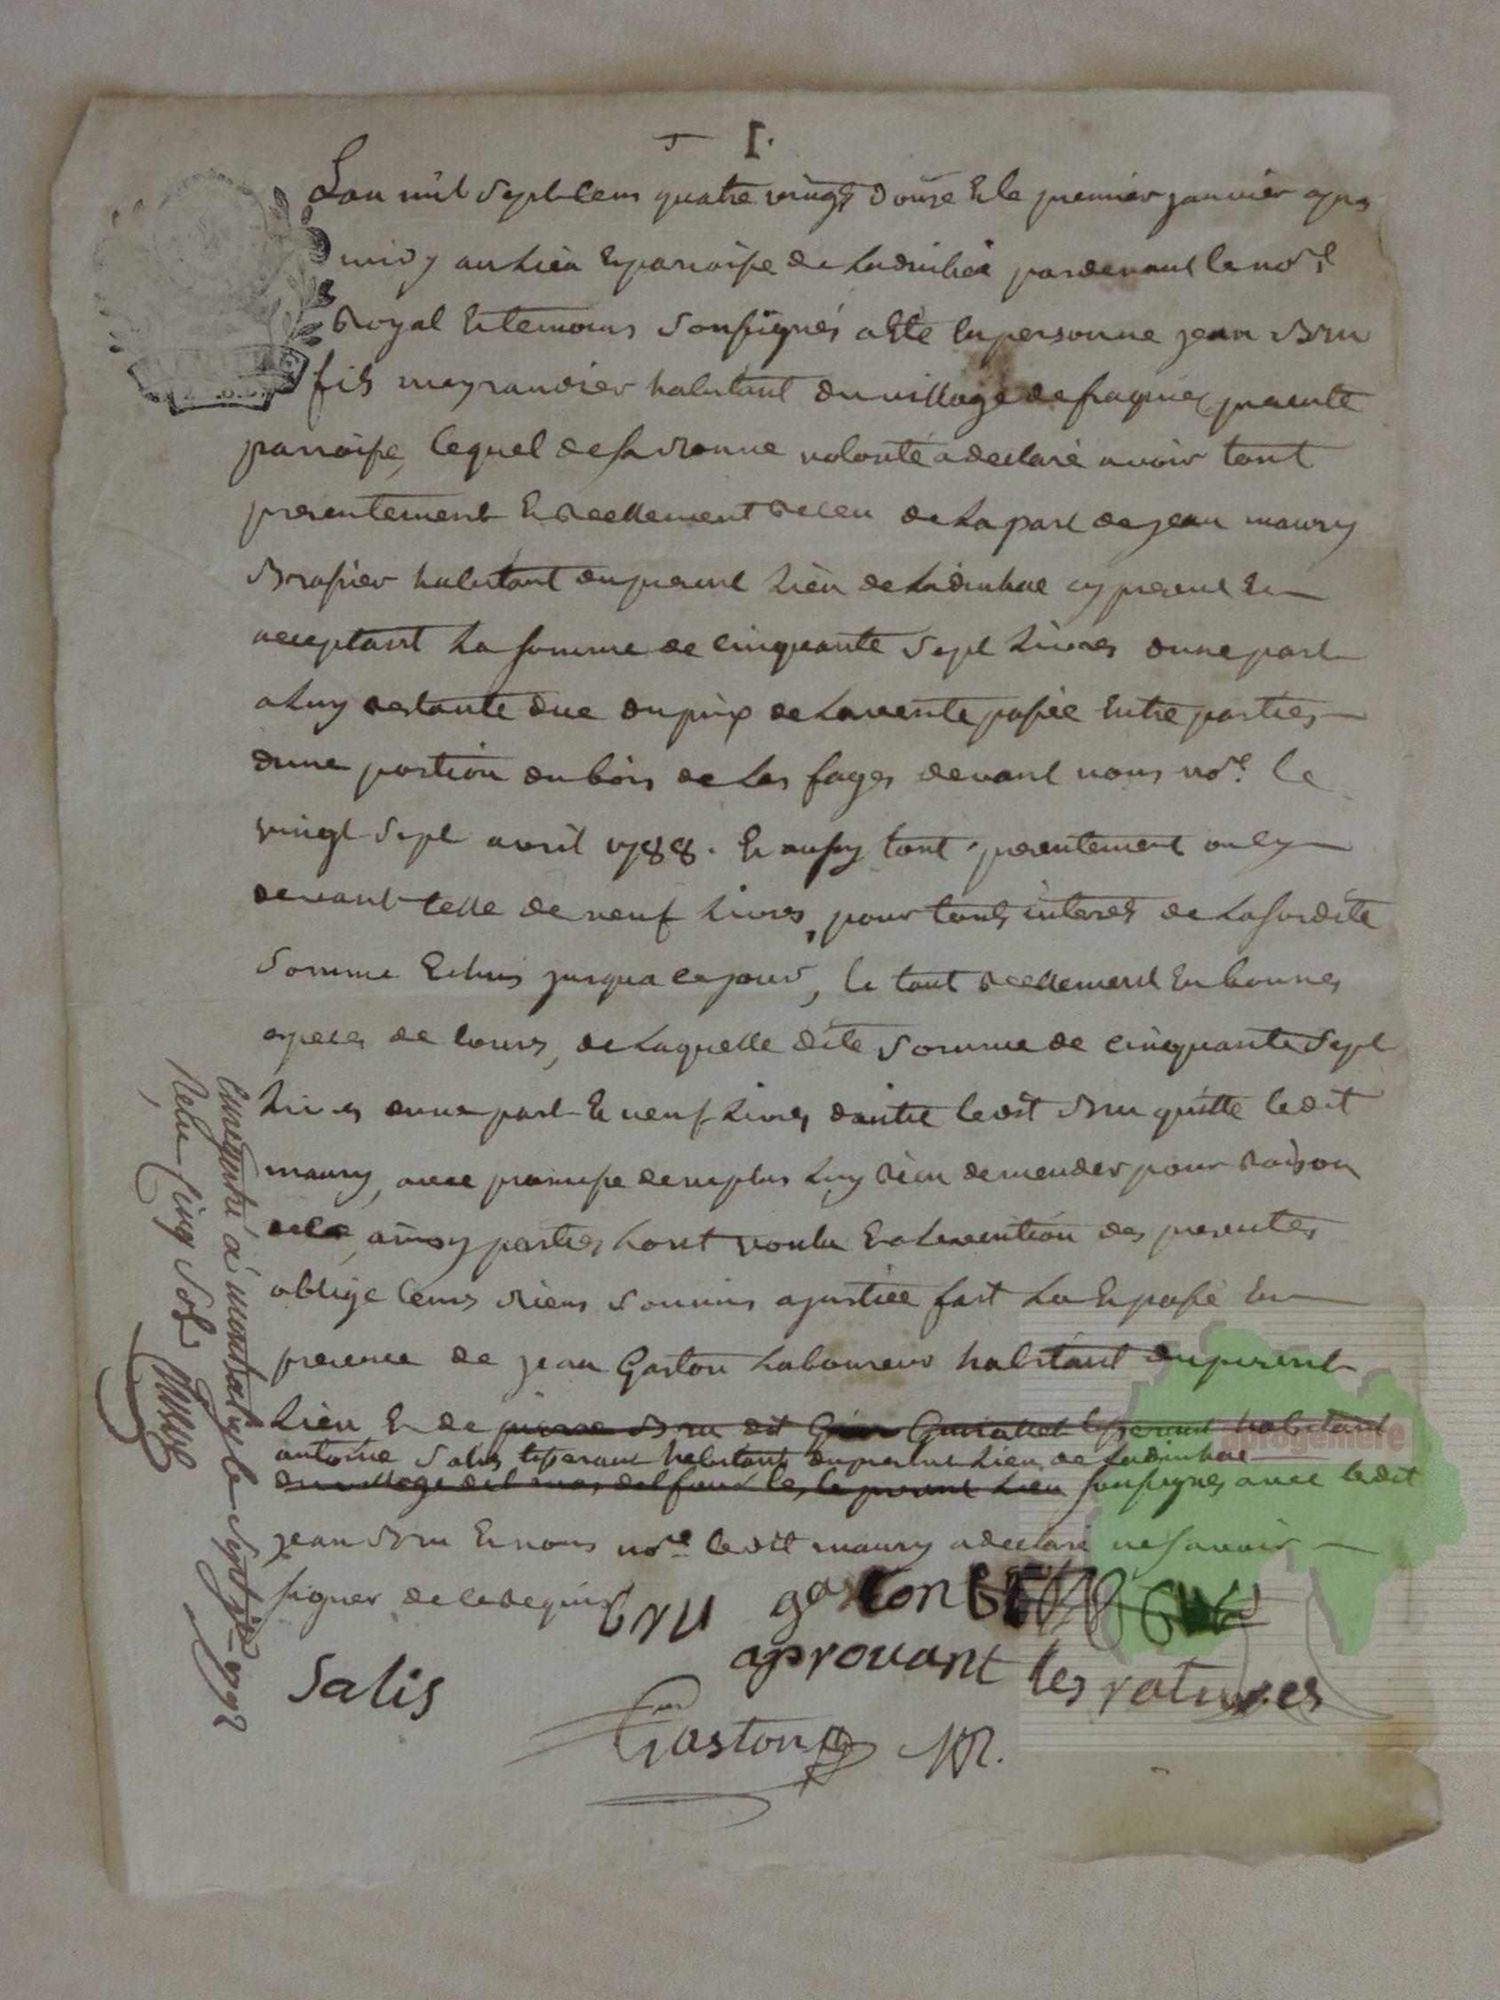 I.
Lan mil Sept cens quatre vingt douze & le premier janvier apres
midy au Lieu & parroisse de Ladinhac pardevant le nore
Royal & temoins Soussignés a été en personne jean Bru
fils meynandier habitant du village de fraquier presente
parroisse, lequel de sa Bonne volonté a declaré avoir tout
presentement & Reellement Receu de La part de jean maury
Brassier habitant du present Lieu de Ladinhac cy present &
acceptant La somme de cinquante Sept Livres dune part
a Luy Restante due du prix de La vente passée Entre parties
dune portion du bois de Las fages devant nous nore. le
vingt Sept avril 1788. & aussy tout presentement on cy
devant celle de neuf Livres, pour tous interets de La susdite
Somme Echus jusqua ce jour, le tout Reellement En bonnes
especes de cours, de Laquelle dite Somme de cinquante Sept
Livres dune part & neuf Livres dautre ledit Bru quitte ledit
maury, avec promesse de ne plus Luy Rien demander pour Raison
de ce, ainsy parties Lont voulu & a Lexecution des presentes
obligé leurs Biens Soumis a justice fait Lu & passé En
presence de jean Gaston Laboureur habitant du present
Lieu & de pierre Bru dit Guirallet tisserant habitant
antoine Salis tisserant habitant du present Lieu de Ladinhac
du village del mas del four les le present Lieu soussignes avec ledit
jean Bru & nous nore. ledit maury a declaré ne savoir
signer de ce Requis
bru gaston
aprouvant les ratures
Salis
Gaston NR.
Enregistré à montsalvy le Sept jer 1792
Reçu cinq Sols
progenere